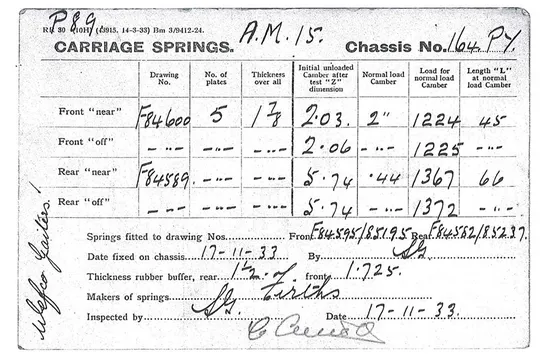 P89
R.R. 30 (10H) (3915. 14-3-33) Bm 3/9412-24.
A.M. 15.
CARRIAGE SPRINGS. Chassis No. 164.PY.
Drawing No. No. of plates Thickness over all Initial unloaded Camber after test "Z" dimension Normal load Camber Load for normal load Camber Length "L" at normal load Camber
Front "near" F84600 5 1 7/8 2.03. 2" 1224 45
Front "off" - " - - " - - " - 2.06 - " - 1225 - " -
Rear "near" F84589. - " - - " - 5.74 .44 1367 66
Rear "off" - - - - " - - " - 5.74 - " - 1372 - " -
Wefco Gaiters!
Springs fitted to drawing Nos. Front F84595/85195 Rear F84582/85237.
Date fixed on chassis 17-11-33 By SG
Thickness rubber buffer, rear 1 1/2 front 1.725.
Makers of springs SG. Firths
Inspected by Date 17-11-33.